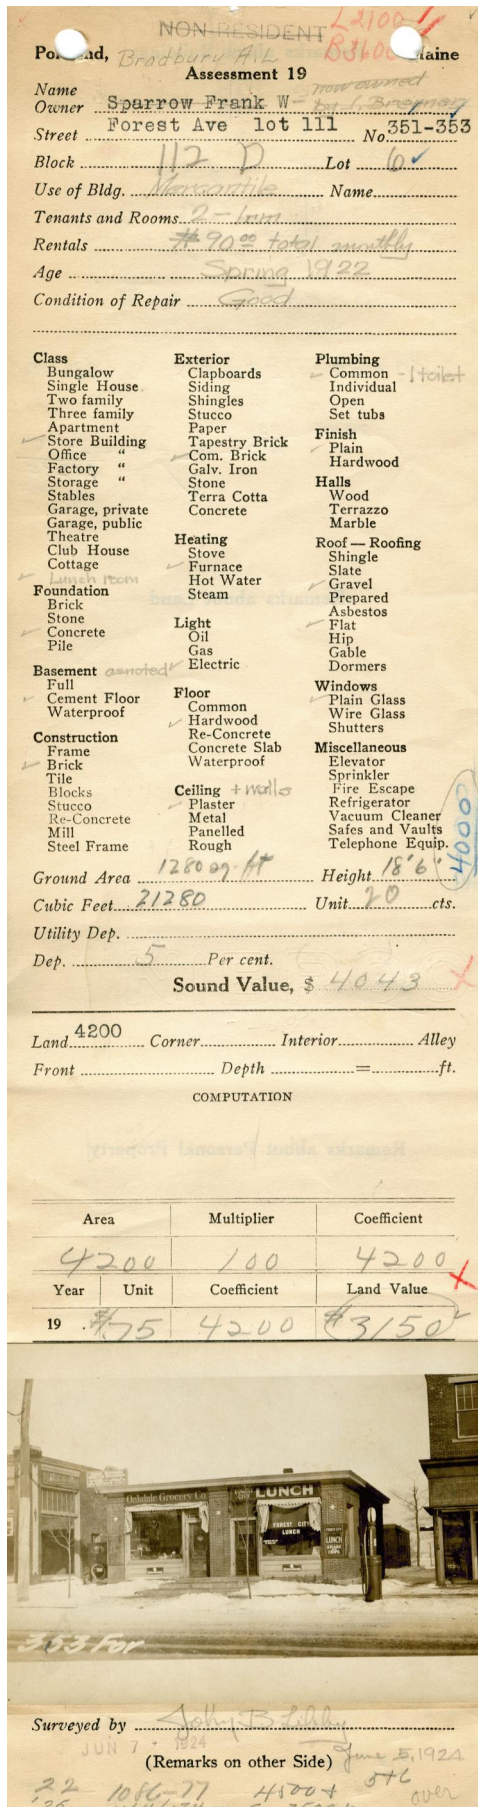 NON RESIDENT L2100
Portland, Bradbury A.L B3600 Maine
Assessment 19
Name now owned
Owner Sparrow Frank W- by J. Bregman
Street Forest Ave lot 111 No. 351-353
Block 112 D Lot 6
Use of Bldg. Mercantile Name
Tenants and Rooms 2 - 1 rm
Rentals #90.00 total monthly
Age Spring 1922
Condition of Repair Good
Class
Bungalow
Single House
Two family
Three family
Apartment
Store Building
Office "
Factory "
Storage "
Stables
Garage, private
Garage, public
Theatre
Club House
Cottage
Lunch room
Foundation
Brick
Stone
Concrete
Pile
Basement as noted
Full
Cement Floor
Waterproof
Construction
Frame
Brick
Tile
Blocks
Stucco
Re-Concrete
Mill
Steel Frame
Exterior
Clapboards
Siding
Shingles
Stucco
Paper
Tapestry Brick
Com. Brick
Galv. Iron
Stone
Terra Cotta
Concrete
Heating
Stove
Furnace
Hot Water
Steam
Light
Oil
Gas
Electric
Floor
Common
Hardwood
Re-Concrete
Concrete Slab
Waterproof
Ceiling + walls
Plaster
Metal
Panelled
Rough
Plumbing
Common - 1 toilet
Individual
Open
Set tubs
Finish
Plain
Hardwood
Halls
Wood
Terrazzo
Marble
Roof — Roofing
Shingle
Slate
Gravel
Prepared
Asbestos
Flat
Hip
Gable
Dormers
Windows
Plain Glass
Wire Glass
Shutters
Miscellaneous
Elevator
Sprinkler
Fire Escape
Refrigerator
Vacuum Cleaner
Safes and Vaults
Telephone Equip.
4000
Ground Area 1280 sq. ft Height 18' 6"
Cubic Feet 21280 Unit 20 cts.
Utility Dep.
Dep. 5 Per cent.
Sound Value, $ 4043
Land 4200 Corner Interior Alley
Front Depth = ft.
COMPUTATION
Remarks about Personal Property
Area Multiplier Coefficient
4200 100 4200
Year Unit Coefficient Land Value
19 . $/75 4200 $3150
Oakdale Grocery Co
LUNCH
FOREST CITY
LUNCH
LUNCH
353 For
Surveyed by John B Libby
JUN 7 - 1924 June 5, 1924
(Remarks on other Side)
5+6
22 1086-77 4500+ over